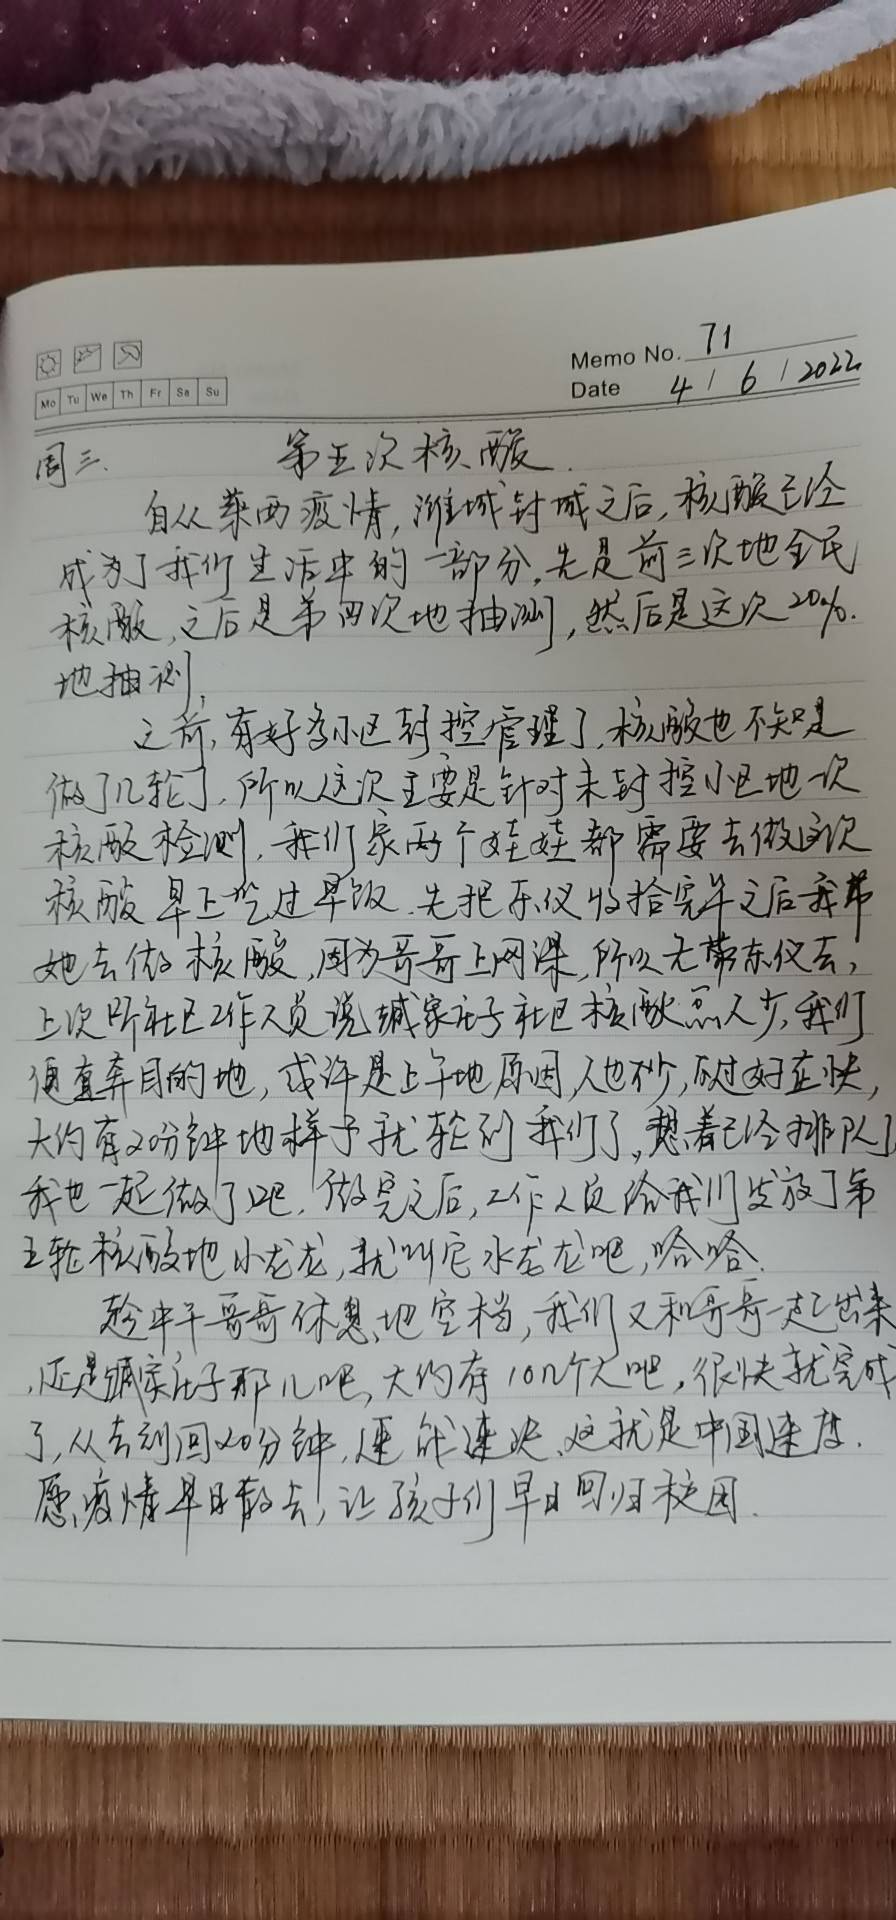 Memo No. 71
Mo Tu We Th Fr Sa Su
Date 4 / 6 / 2022
周三. 第五次核酸.
自从莱西疫情,潍城封城之后,核酸已经
成为了我们生活中的一部分,先是前三次地全民
核酸,之后是第四次地抽测,然后是这次20%.
地抽测,
之前,有好多小区封控管理了,核酸也不知是
做了几轮了,所以这次主要是针对未封控小区地一次
核酸检测,我们家两个娃娃都需要去做这次
核酸 早上吃过早饭,先把东仪收拾完毕之后我带
她去做核酸,因为哥哥上网课,所以先带东仪去,
上次听社区工作人员说臧家庄子社区核酸点人少,我们
便直奔目的地,或许是上午地原因,人也不少,不过好在快,
大约有20分钟地样子就轮到我们了,想着已经排队了
我也一起做了吧,做完之后,工作人员给我们发放了第
五轮核酸地小龙龙,就叫它水龙龙吧,哈哈.
趁中午哥哥休息地空档,我们又和哥哥一起出来
,还是臧家庄子那儿吧,大约有10几个人吧,很快就完成
了,从去到回20分钟,速战速决,这就是中国速度.
愿疫情早日散去,让孩子们早日回归校园.